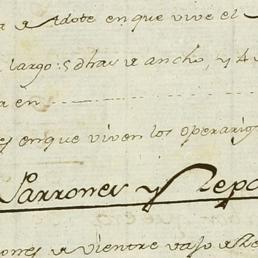 a de Adove en que vive el
largo: 5 dhas de ancho, y 4 d
a en
es en que viven los operarios
Jarrones y Repa
ones de vientre vajo de